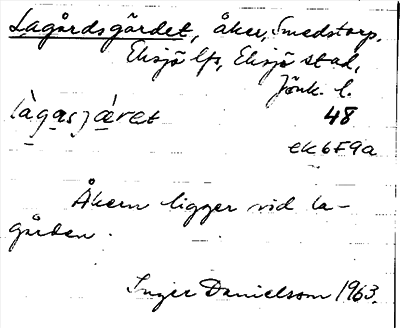 Lagårdsgärdet, åker, Smedstorp,
Eksjö lfs, Eksjö stad,
Jönk. l.
làgasjæ̀ret 48
ek6F9a
Åkern ligger vid la-
gården.
Inger Danielsson 1963.